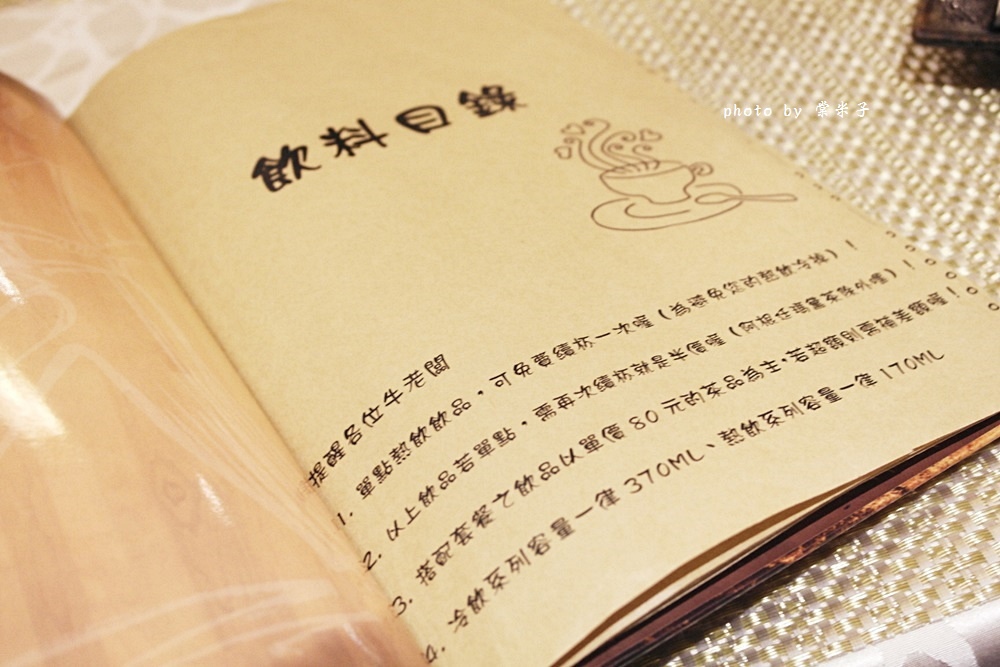 飲料目錄
photo by 棠米子
提醒各位牛老闆
1. 單點熱飲飲品，可免費續杯一次喔（為避免您的熱飲冷掉）！
2. 以上飲品若單點，需再次續杯就是半價喔（阿根廷瑪黛茶除外喔）！
3. 搭配套餐之飲品以單價80元的茶品為主，若超額則需補差額喔！
4. 冷飲系列容量一律370ML、熱飲系列容量一律170ML